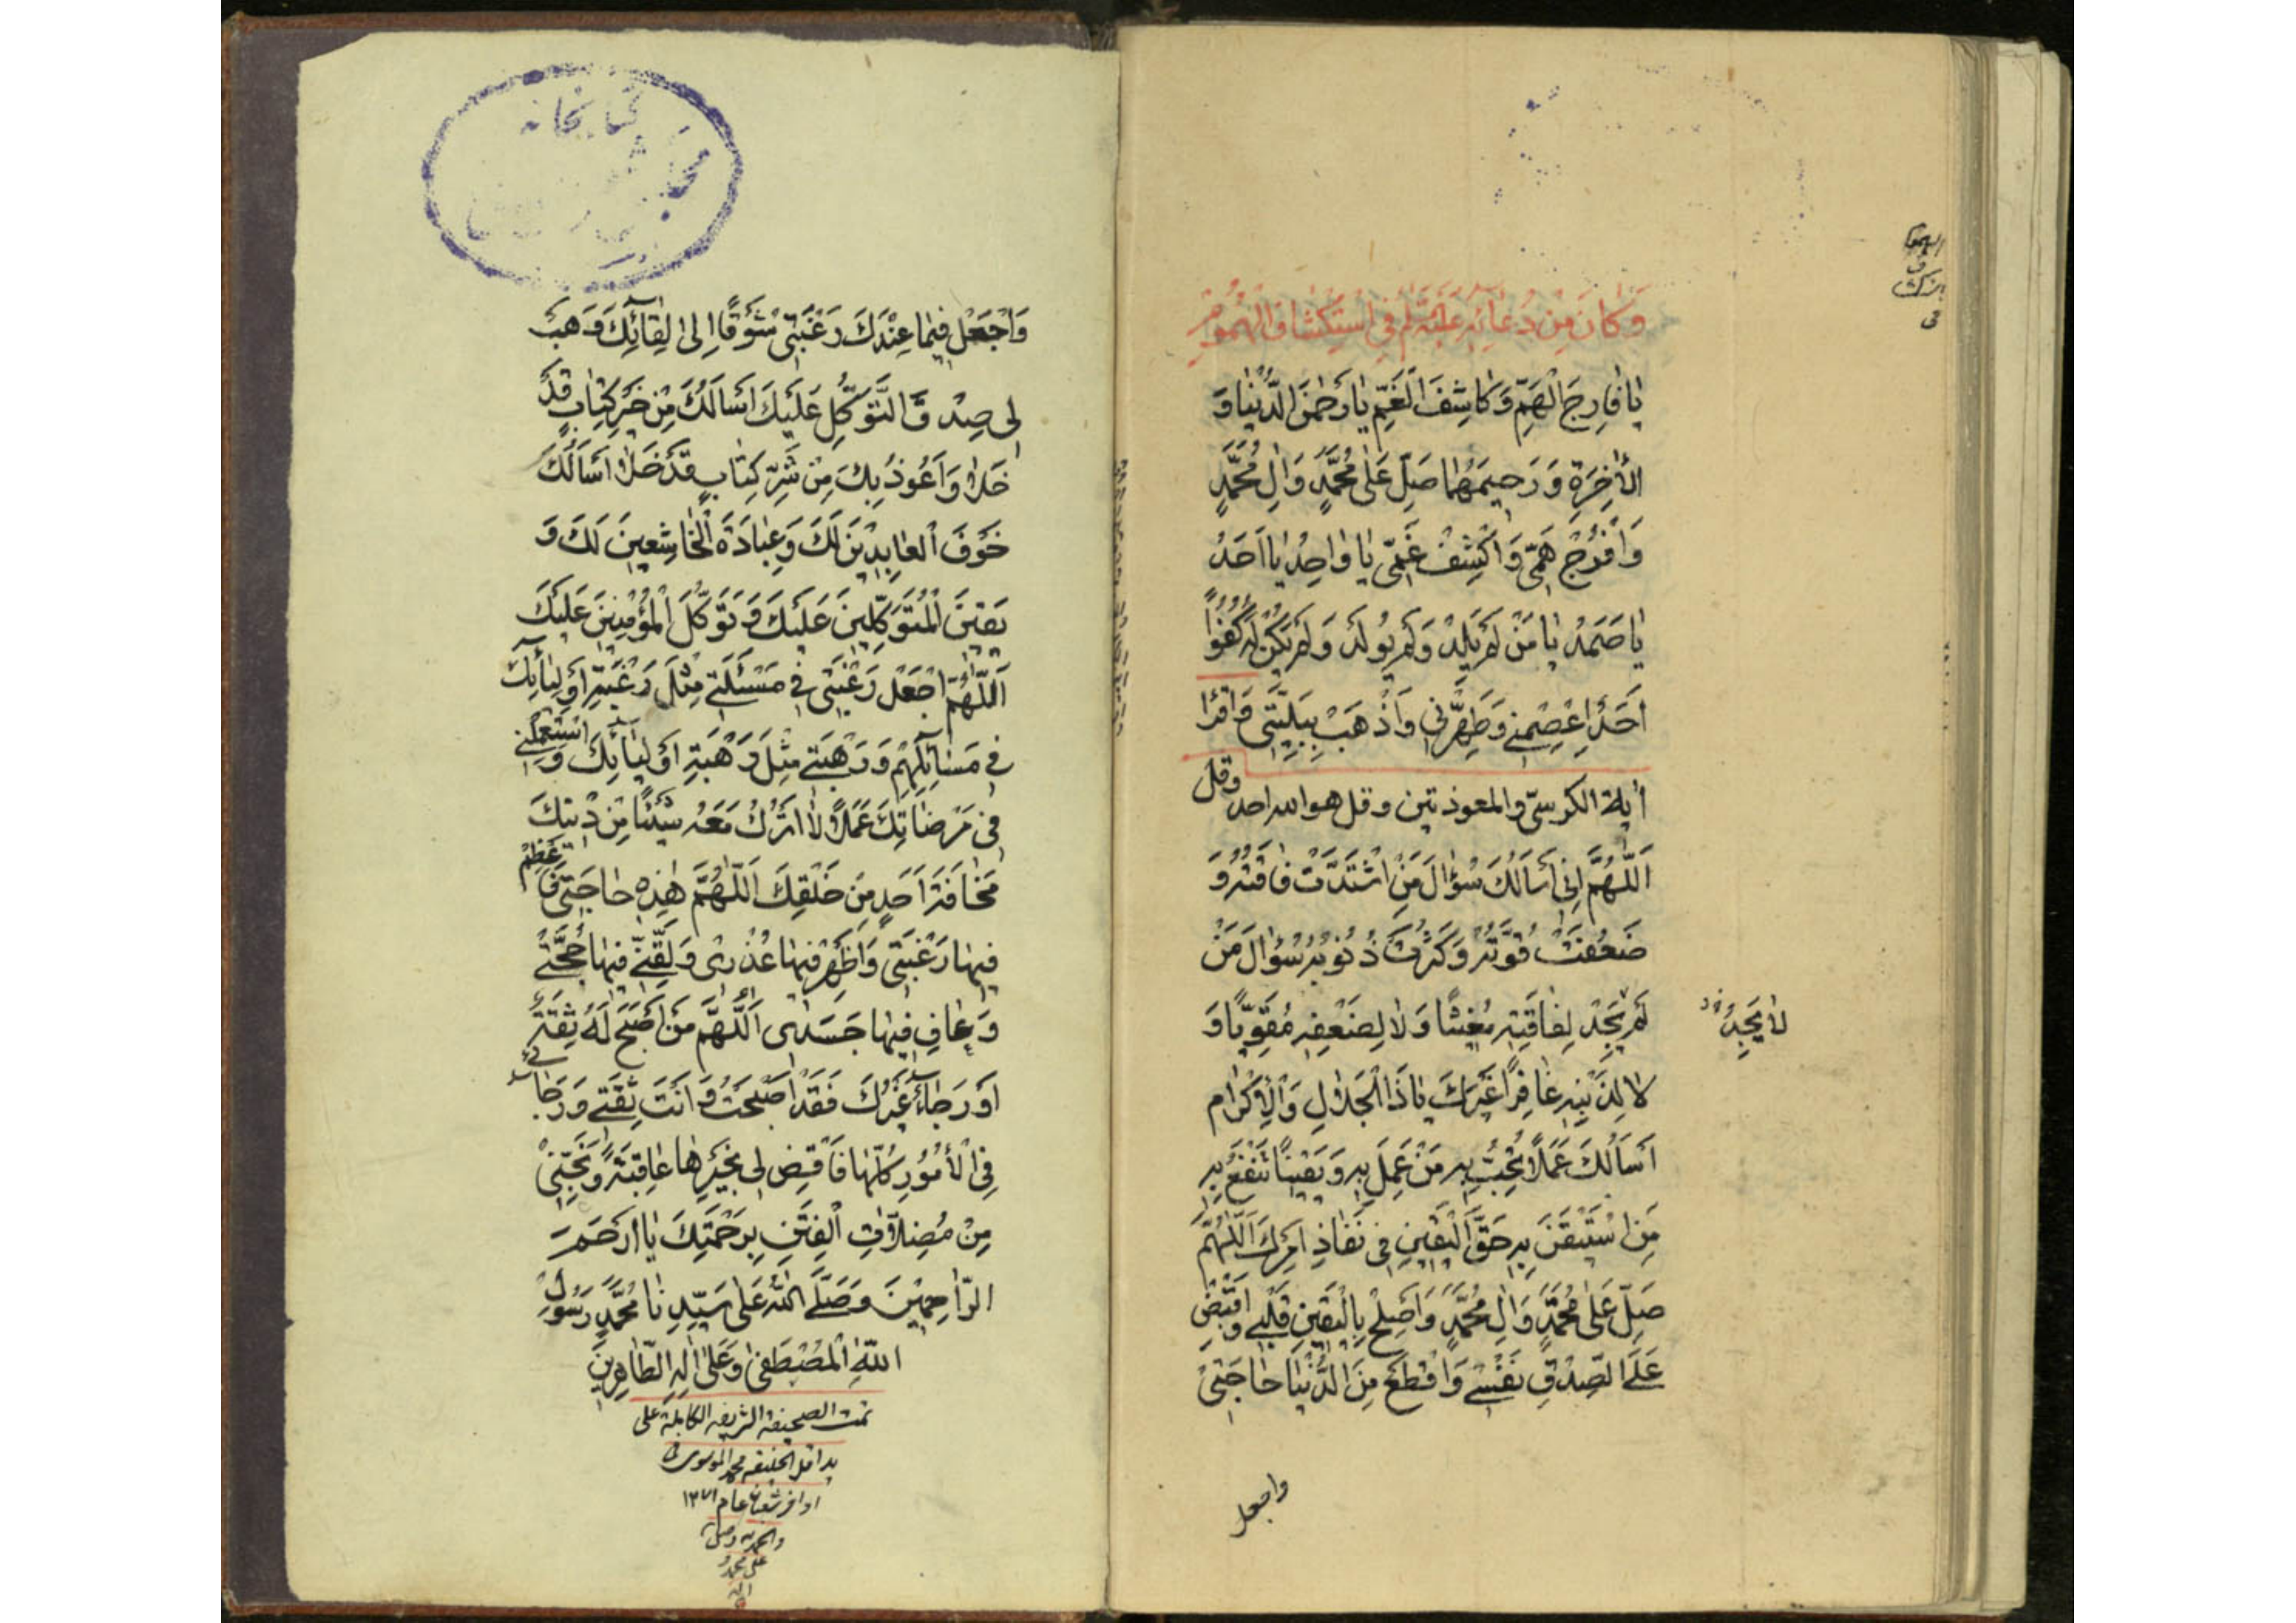 وَكَانَ مِنْ دُعَائِهِ عَلَيْهِ السَّلَامُ فِي اسْتِكْشَافِ الْهُمُومِ
يَا فَارِجَ الْهَمِّ وَكَاشِفَ الْغَمِّ يَا رَحْمٰنَ الدُّنْيَا وَ
الْاٰخِرَةِ وَرَحِيمَهُمَا صَلِّ عَلَى مُحَمَّدٍ وَاٰلِ مُحَمَّدٍ
وَافْرُجْ هَمِّي وَاكْشِفْ غَمِّي يَا وَاحِدُ يَا اَحَدُ
يَا صَمَدُ يَا مَنْ لَمْ يَلِدْ وَلَمْ يُولَدْ وَلَمْ يَكُنْ لَهُ كُفُوًا
اَحَدٌ اِعْصِمْنِي وَطَهِّرْنِي وَاذْهَبْ بِبَلِيَّتِي وَاقْرَا
اٰية الكرسيّ والمعوذتين وقل هو الله احد وقل
اَللّٰهُمَّ اِنِّي اَسْاَلُكَ سُؤَالَ مَنِ اشْتَدَّتْ فَاقَتُهُ وَ
ضَعُفَتْ قُوَّتُهُ وَكَثُرَتْ ذُنُوبُهُ سُؤَالَ مَنْ
لَمْ يَجِدْ لِفَاقَتِهِ مُغِيثًا وَلَا لِضَعْفِهِ مُقَوِّيًا وَ
لَا يَجِدُ
لَا لِذَنْبِهِ غَافِرًا غَيْرَكَ يَا ذَا الْجَلَالِ وَالْاِكْرَام
اَسْاَلُكَ عَمَلًا تُحِبُّ بِهِ مَنْ عَمِلَ بِهِ وَيَقِينًا تَنْفَعُ بِهِ
مَنِ اسْتَيْقَنَ بِهِ حَقَّ الْيَقِينِ فِي نَفَاذِ اَمْرِكَ اَللّٰهُمَّ
صَلِّ عَلَى مُحَمَّدٍ وَاٰلِ مُحَمَّدٍ وَاَصْلِحْ بِالْيَقِينِ قَلْبِي وَاقْبِضْ
عَلَى الصِّدْقِ نَفْسِي وَاقْطَعْ مِنَ الدُّنْيَا حَاجَتِي
واجعل
كتابخانه
مجلس
وَاجْعَلْ فِيمَا عِنْدَكَ رَغْبَتِي شَوْقًا اِلَى لِقَائِكَ وَهَبْ
لِي صِدْقَ التَّوَكُّلِ عَلَيْكَ اَسْاَلُكَ مِنْ خَيْرِ كِتَابٍ قَدْ
خَلَا وَاَعُوذُ بِكَ مِنْ شَرِّ كِتَابٍ قَدْ خَلَا اَسْاَلُكَ
خَوْفَ الْعَابِدِينَ لَكَ وَعِبَادَةَ الْخَاشِعِينَ لَكَ وَ
يَقِينَ الْمُتَوَكِّلِينَ عَلَيْكَ وَتَوَكُّلَ الْمُؤْمِنِينَ عَلَيْكَ
اَللّٰهُمَّ اجْعَلْ رَغْبَتِي فِي مَسْئَلَتِي مِثْلَ رَغْبَةِ اَوْلِيَائِكَ
فِي مَسَائِلِهِمْ وَرَهْبَتِي مِثْلَ رَهْبَةِ اَوْلِيَائِكَ وَاسْتَعْمِلْنِي
فِي مَرْضَاتِكَ عَمَلًا لَا اَتْرُكُ مَعَهُ شَيْئًا مِنْ دِينِكَ
مَخَافَةَ اَحَدٍ مِنْ خَلْقِكَ اَللّٰهُمَّ هٰذِهِ حَاجَتِي فَاَعْظِمْ
فِيهَا رَغْبَتِي وَاَظْهِرْ فِيهَا عُذْرِي وَلَقِّنِّي فِيهَا حُجَّتِي
وَعَافِ فِيهَا جَسَدِي اَللّٰهُمَّ مَنْ اَصْبَحَ لَهُ ثِقَةٌ
اَوْ رَجَاءٌ غَيْرُكَ فَقَدْ اَصْبَحْتُ وَاَنْتَ ثِقَتِي وَرَجَائِي
فِي الْاُمُورِ كُلِّهَا فَاقْضِ لِي بِخَيْرِهَا عَاقِبَةً وَنَجِّنِي
مِنْ مُضِلَّاتِ الْفِتَنِ بِرَحْمَتِكَ يَا اَرْحَمَ
الرَّاحِمِينَ وَصَلَّى اللهُ عَلَى سَيِّدِنَا مُحَمَّدٍ رَسُولِ
اللهِ الْمُصْطَفَى وَعَلَى اٰلِهِ الطَّاهِرِينَ
تمت الصحيفة الشريفه الكاملة على
يد اقل الخليقه محمد الموسوى
اواخر شعبان عام ١٢٧١
والحمد لله وصلى الله
على محمد و
اله